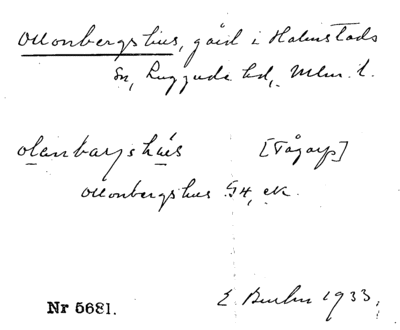 Ollonbergshus, gård i Halmstads
sn, Luggude hd, Mlm. l.
olanbarjshús [Tågarp]
Ollonbergshus G4, ek.
E. 1933.
Nr 5681.